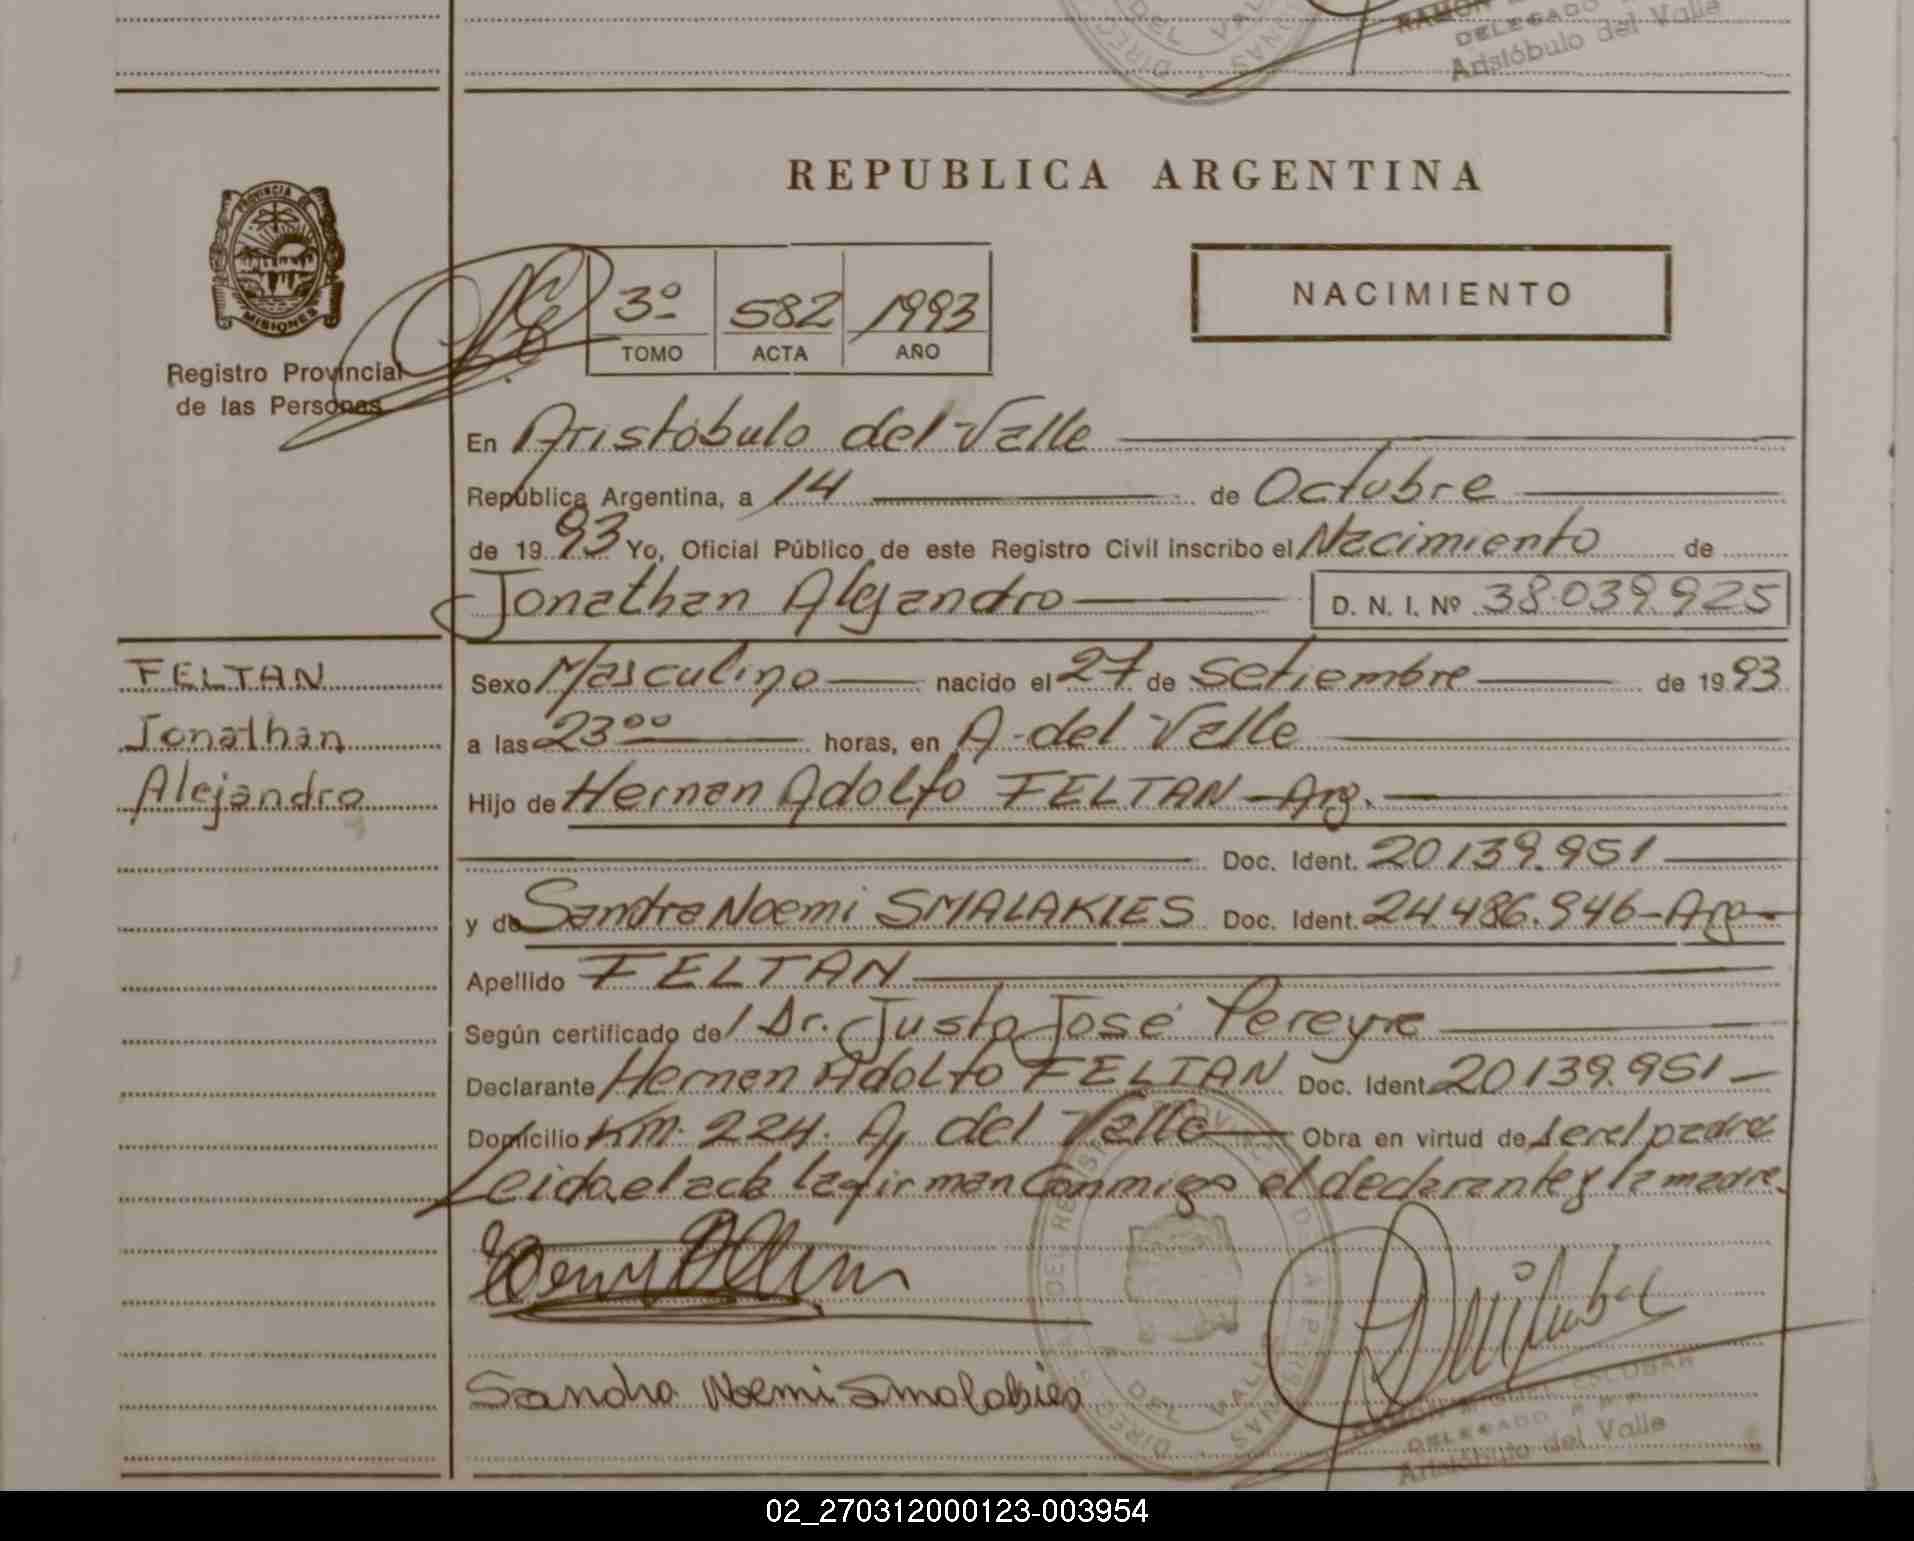 DELEGADO
Aristóbulo del Valle
REPUBLICA ARGENTINA
PROVINCIA DE
MISIONES
Registro Provincial
de las Personas
3º 582 1993
TOMO ACTA AÑO
NACIMIENTO
En Aristóbulo del Valle
República Argentina, a 14 de Octubre
de 1993 Yo, Oficial Público de este Registro Civil inscribo el Nacimiento de
Jonathan Alejandro D. N. I. Nº 38.039.925
FELTAN
Jonathan
Alejandro
Sexo Masculino nacido el 27 de Setiembre de 1993
a las 23ºº horas, en A. del Valle
Hijo de Hernan Adolfo FELTAN - Arg.
Doc. Ident. 20.139.951
y de Sandra Noemi SMALAKIES Doc. Ident. 24.486.946 - Arg.
Apellido FELTAN
Según certificado del Dr. Justo José Pereyra
Declarante Hernan Adolfo FELTAN Doc. Ident. 20139.951
Domicilio Km. 224. A. del Valle Obra en virtud de ser el padre
Leida el acta la firman conmigo el declarante y la madre.
Sandra Noemi Smalakies
DEL VALLE
RAMON MIGUEL ESCOBAR
DELEGADO R.P.P.
Aristóbulo del Valle
02_270312000123-003954